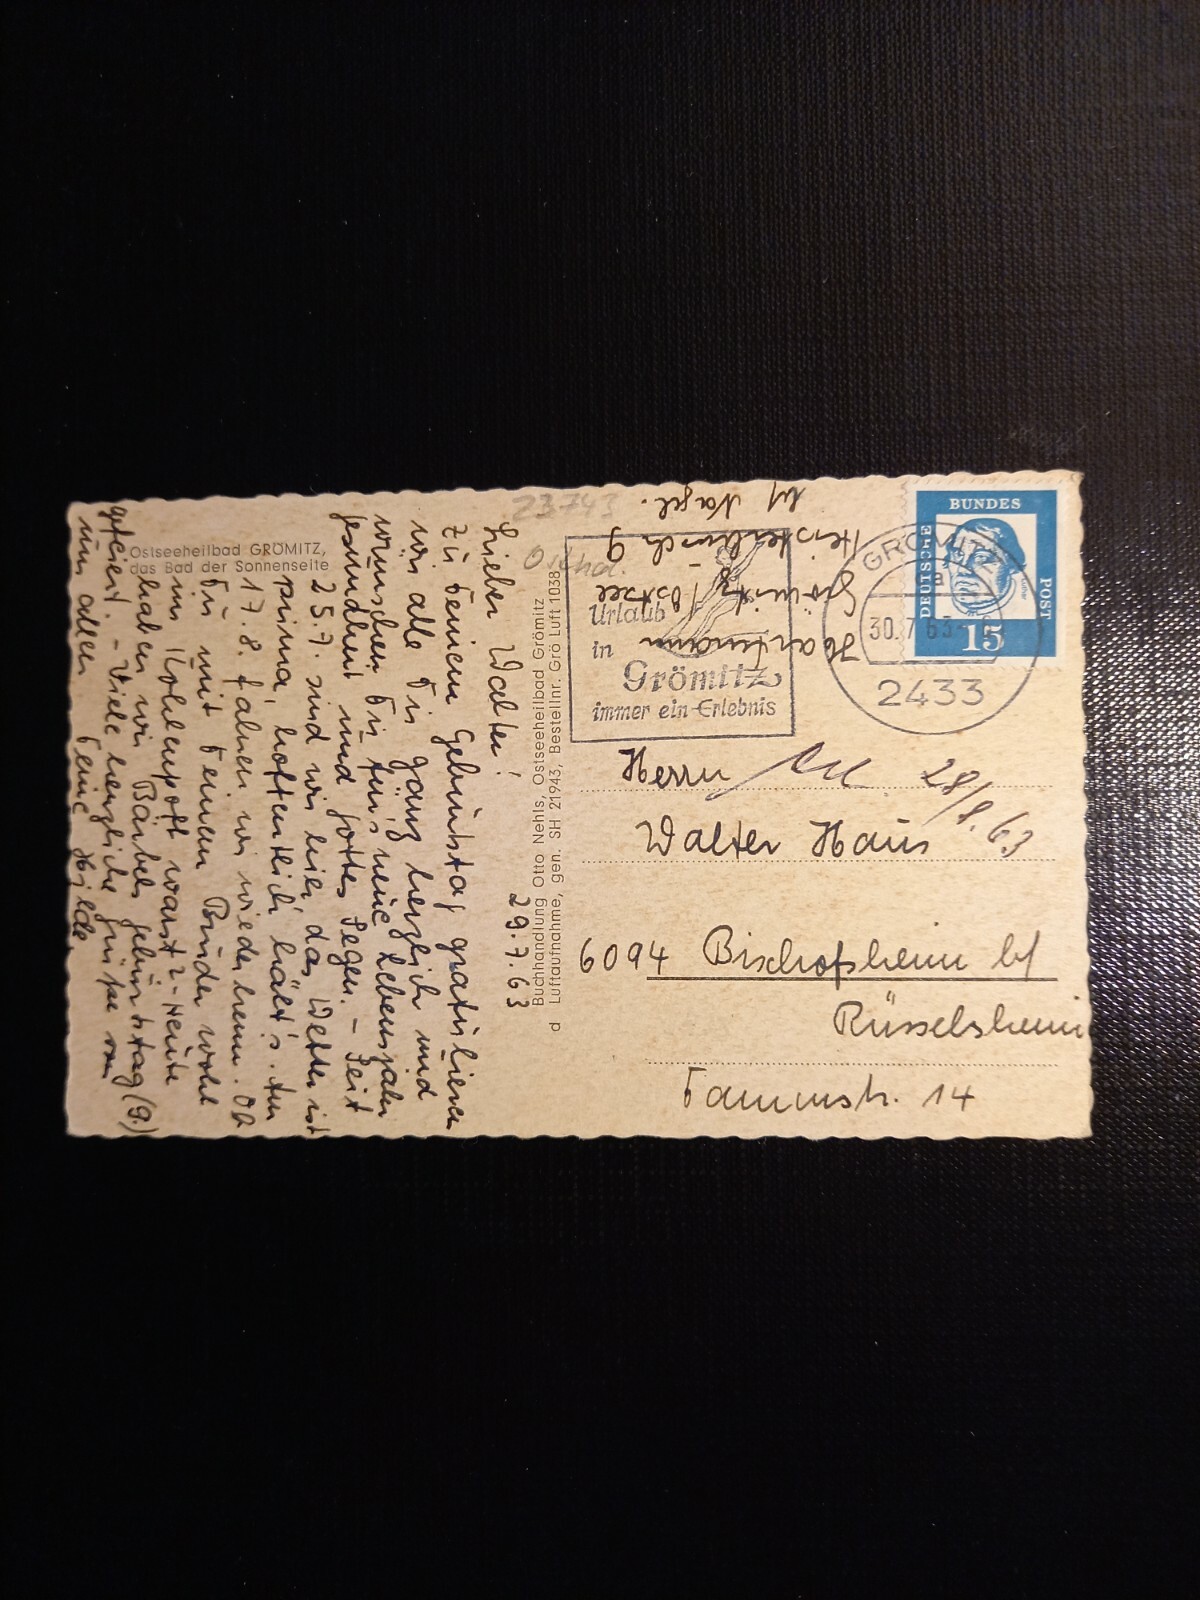 29.7.63
Lieber Walter!
Zu Deinem Geburtstag gratulieren
wir alle Dir ganz herzlich und
wünschen Dir für's neue Lebensjahr
Gesundheit und Gottes Segen. – Seit
25.7. sind wir hier, das Wetter ist
prima, hoffentlich hält's. Am
17.8. fahren wir wieder heim. Ob
Du mit Deinem Bruder wohl
im warst? – Heute
haben wir Bärbels Geburtstag (9.)
gefeiert. – Viele herzliche Grüße von
uns allen Deine Hilde
Ostseeheilbad GRÖMITZ,
das Bad der Sonnenseite
Buchhandlung Otto Nehls, Ostseeheilbad Grömitz
d Luftaufnahme, gen. SH 21943, Bestellnr. Grö Luft 1038
23743
Hartmann
Grömitz/Ostsee
9
b/ Nagel.
Urlaub
in
Grömitz
immer ein Erlebnis
GRÖMITZ
a
30.7.63
2433
DEUTSCHE
BUNDES
POST
15
Herrn
28/8.63
Walter Haus
6094 Bischofsheim b/
Rüsselsheim
Taunusstr. 14